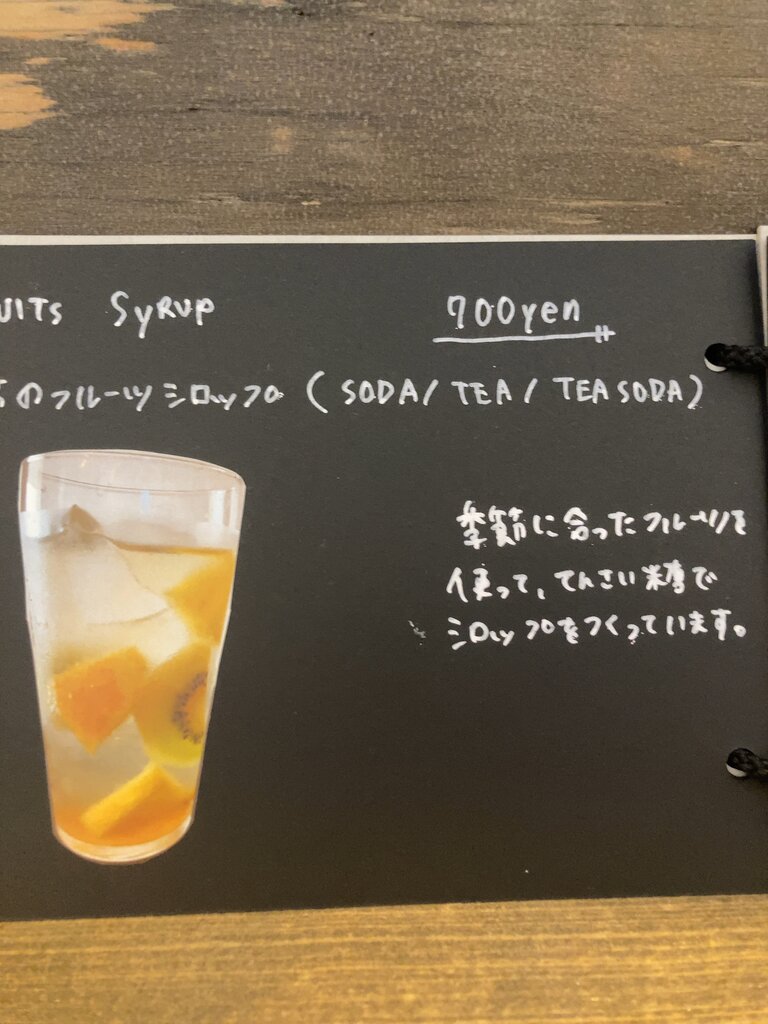 UITS SYRUP 700yen
のフルーツシロップ (SODA/ TEA/ TEA SODA)
季節に合ったフルーツを
使って、てんさい糖で
シロップをつくっています。